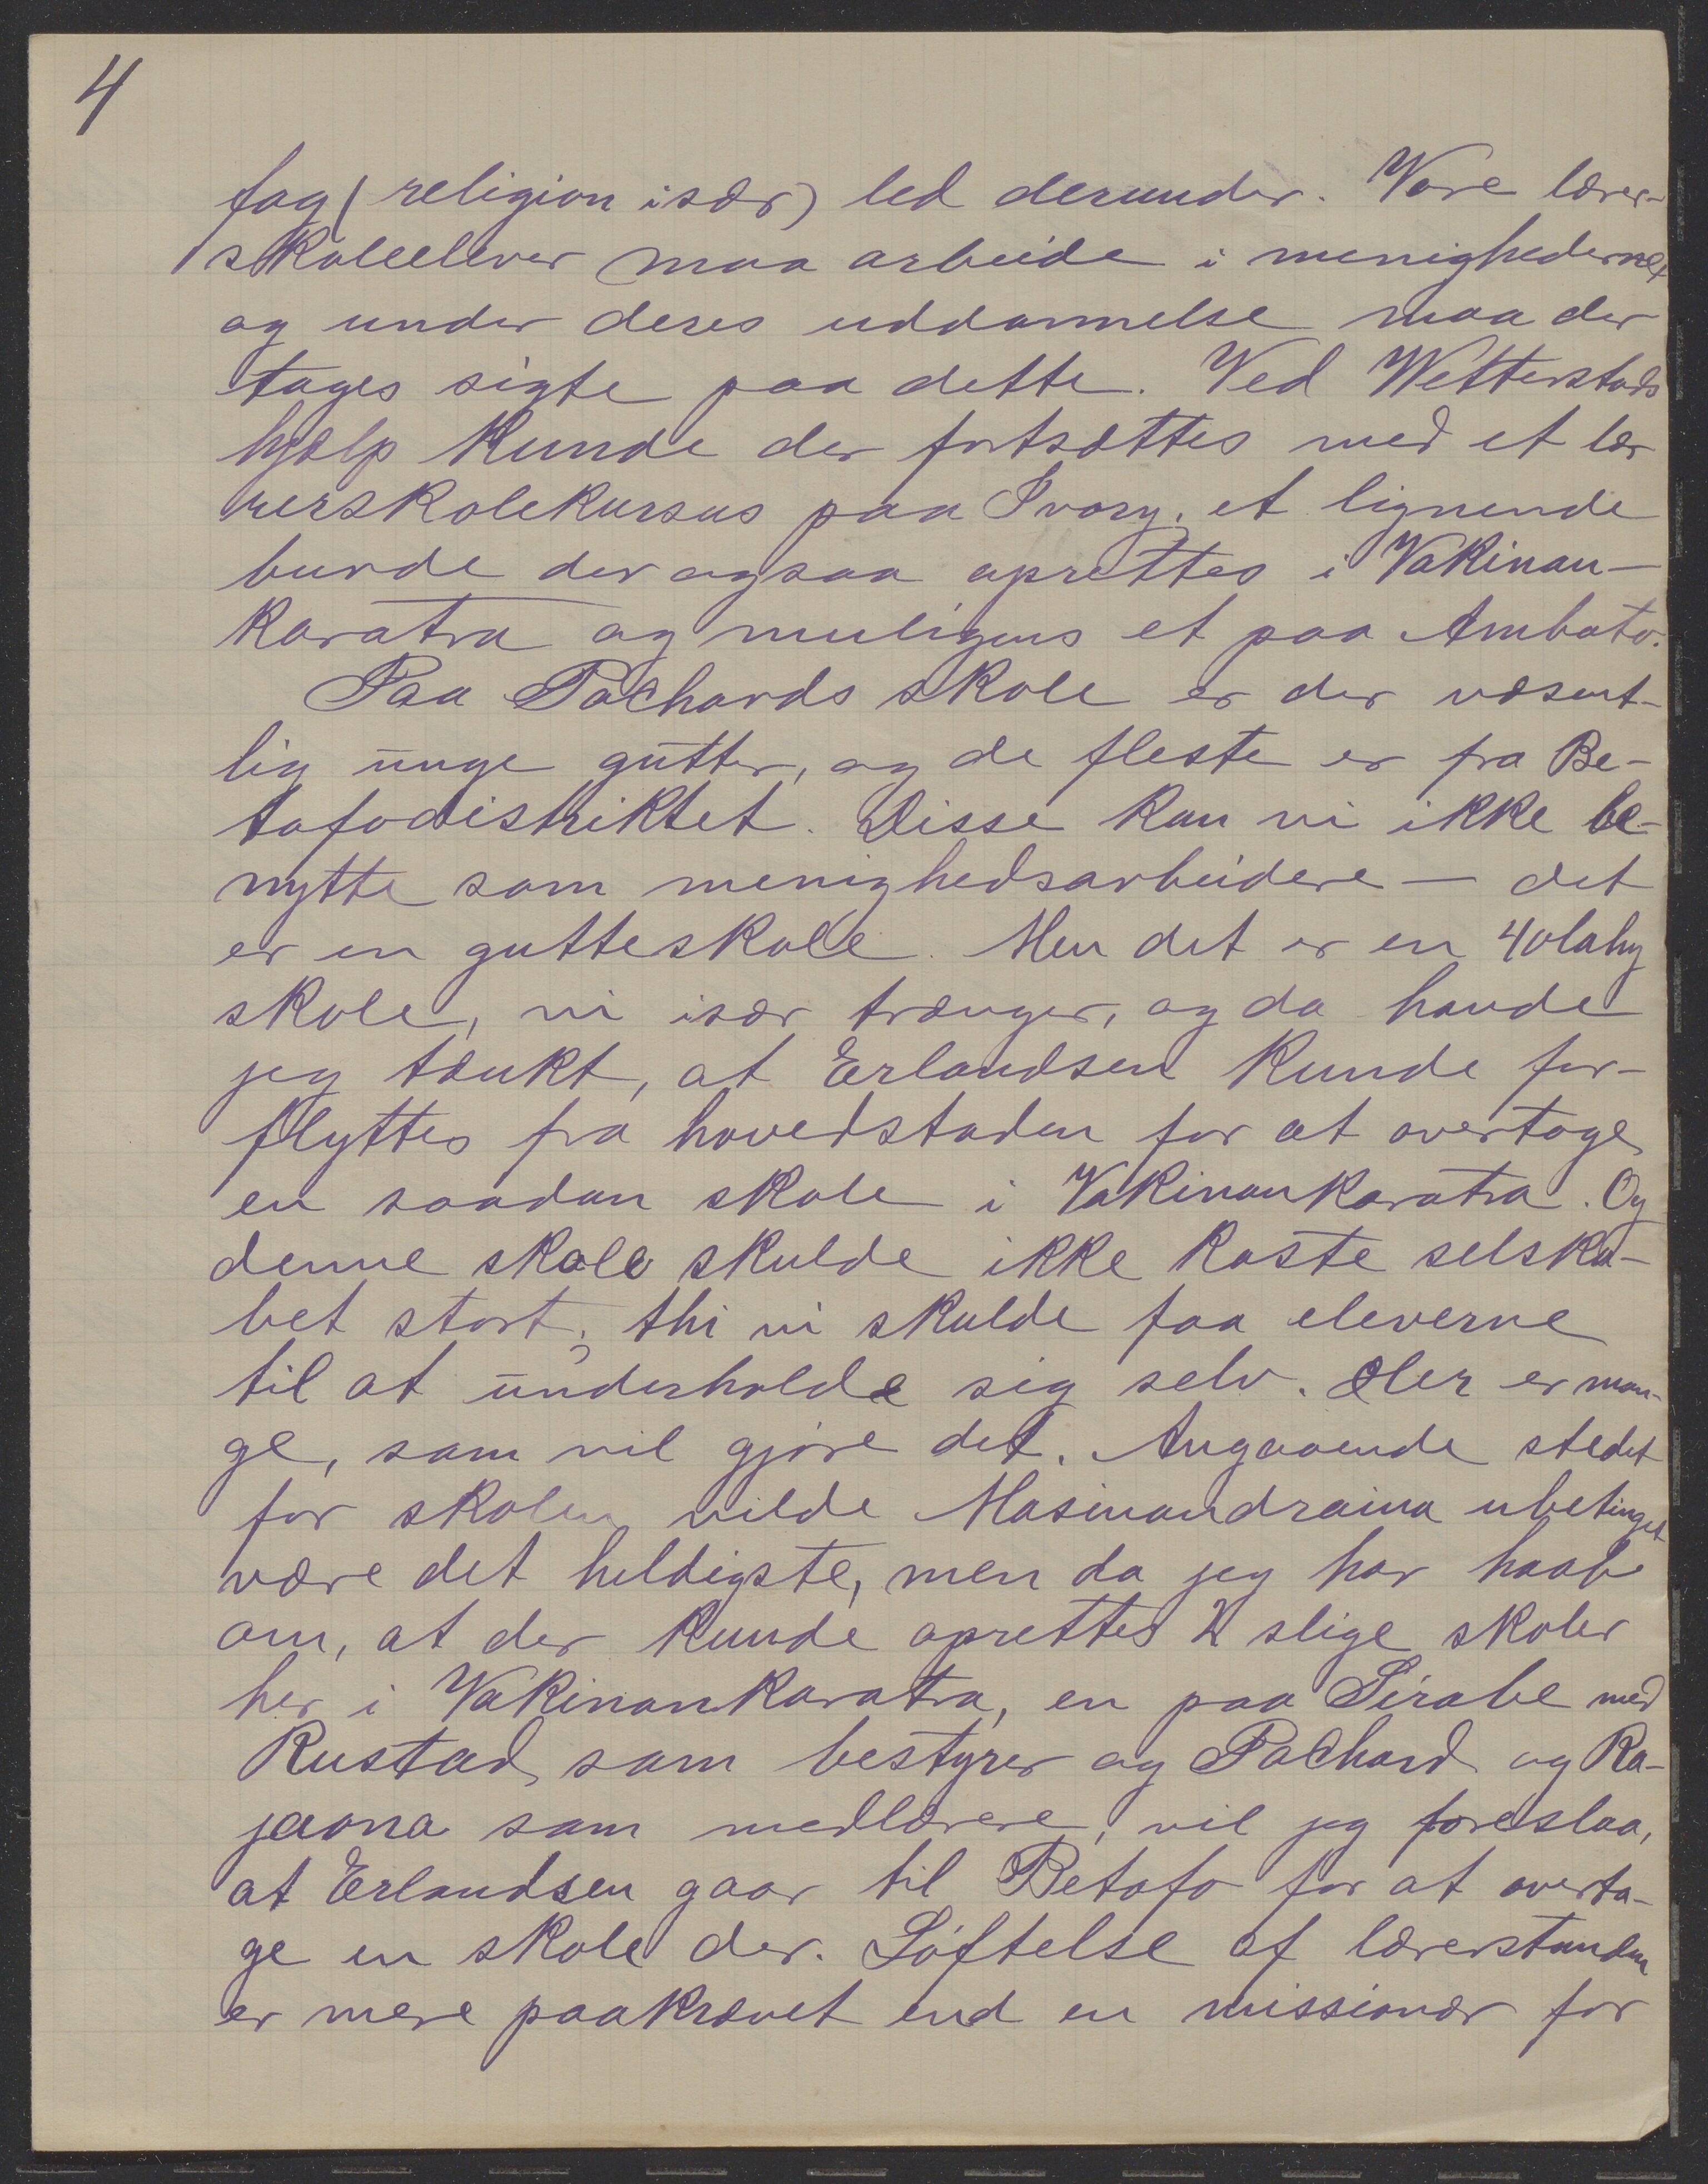 4
fag (religion især) led derunder. Vore lærer-
skoleelever maa arbeide i menighederne,
og under deres uddannelse maa der
tages sigte paa dette. Ved Wetterstads
hjælp kunde der fortsættes med et læ
rerskolekursus paa Ivory, et lignende
burde der ogsaa oprettes i Vakinan-
karatra og muligens et paa Ambato.
Paa Pochards skole er der væsent-
lig unge gutter, og de fleste er fra Be-
tafodistriktet. Disse kan vi ikke be-
nytte som menighedsarbeidere — det
er en gutteskole. Men det er en 40lahy
skole, vi især trænger, og da havde
jeg tænkt, at Erlandsen kunde for-
flyttes fra hovedstaden for at overtage
en saadan skole i Vakinankaratra. Og
denne skole skulde ikke koste selska-
bet stort, thi vi skulde faa eleverne
til at underholde sig selv. Her er man-
ge, som vil gjøre det. Angaaende stedet
for skolen vilde Masinandraina ubetinget
være det heldigste, men da jeg har haab
om, at der kunde oprettes 2 slige skoler
her i Vakinankaratra, en paa Sirabe med
Rustad som bestyrer og Pochard og Ra-
jaona som medlærere, vil jeg foreslaa,
at Erlandsen gaar til Betafo for at overta-
ge en skole der. Løftelse af lærerstanden
er mere paakrævet end en missionær for